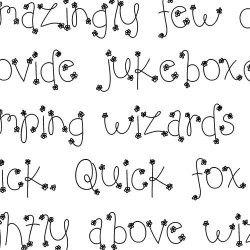 mazingly few d
ovide jukebox
mping wizards
ick Quick fox
ghty above wi